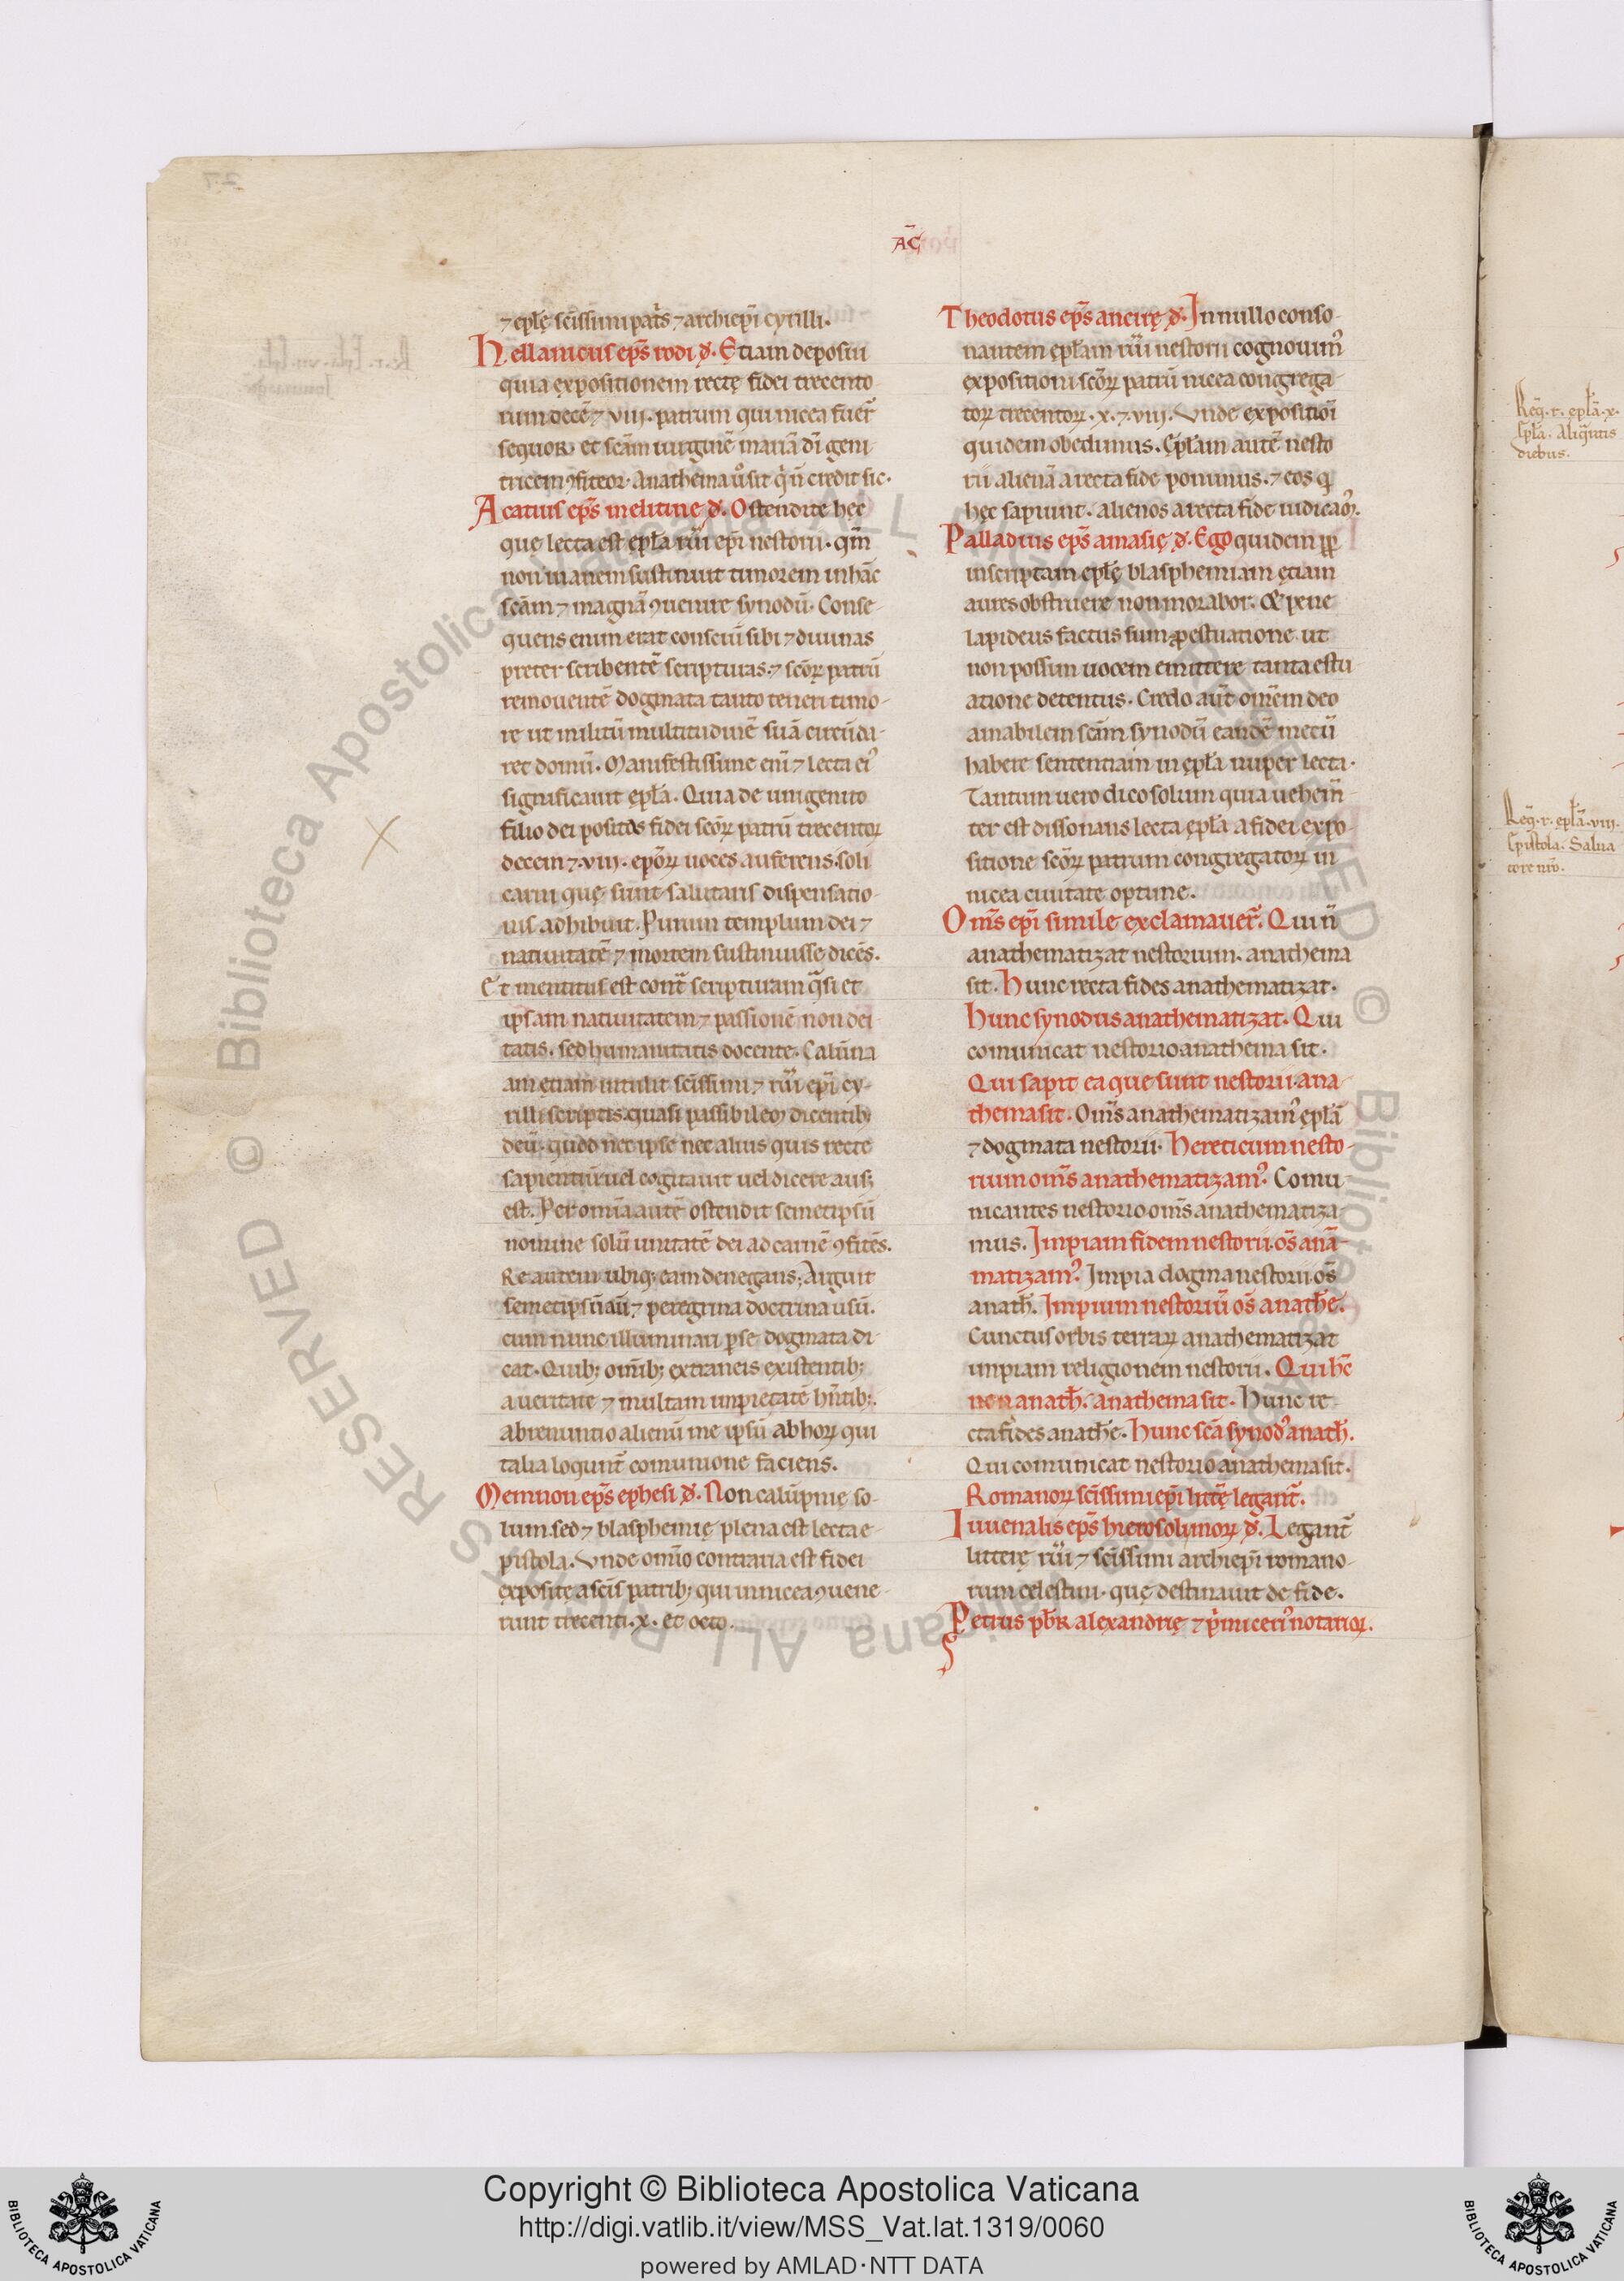 AC̄
⁊ eplę scīssimi pat̄s ⁊ archiep̄i cyrilli.
Hellanicus ep̄s rodi .đ. Etiam deposui
quia expositionem rectę fidei trecento
rum decē ⁊ viii. patrum qui nicea fuer̄
sequor. et scām uirginē mariā dī geni
tricem ꝯfiteor. Anathema ů sit q̇ n̄ credit sic.
Acatius ep̄s melitine .đ. Ostendite hęc
quę lecta est ępła rūi ep̄i nestorii. qm̄
non inanem sustinuit timorem in hāc
scām ⁊ magnā ꝯuenire synodū. Conse-
quens enim erat consciū sibi ⁊ diuinas
preter scribentē scripturas. ⁊ scōꝝ patrū
remouentē dogmata tanto teneri timo-
re ut militū multitudinē suā circūda-
ret domū. Manifestissime eni ⁊ lecta ei᾽
significauit ępła. Quia de unigenito
filio dei positas fidei scōꝝ patrū trecentoꝝ
decem ⁊ .viii. ep̄oꝝ uoces auferens. soli
carni quę sunt salutaris dispensatio-
nis adhibuit. Purum templum dei ⁊
natiuitatē ⁊ mortem sustinuisse dicēs.
Et mentitus est cont̄ scripturam q̄si et
ipsam natiuitatem ⁊ passionē non dei
tatis. sed humanitatis docente. Calūnia
am etiam intulit scīssimi ⁊ rūi ep̄i cy-
rilli scriptis. quasi passibilem dicentib;
deū. quod nec ipse nec alius quis recte
sapientiū uel cogitauit uel dicere aus;
est. Per omīa autē ostendit semetipsū
nomine solū unitatē dei ad carnē ꝯfitēs.
Re autem ubiq; eam denegans; Arguit
semetipsū aū ⁊ peregrina doctrina usū.
cum nunc illuminari p se dogmata di-
cat. Quib; omīb; extraneis existentib;
a ueritate ⁊ multam impietatē hn̄tib;.
abrenuntio alienū me ipsū ab hoꝝ qui
talia loqunt̄ comunione faciens.
Memnon ep̄s ephesi .đ. Non calūpnię so-
lum. sed ⁊ blasphemię plena est lecta e-
pistola. Vnde omīo contraria est fidei
expositę a scīs patrib; qui in nicea ꝯuene-
runt trecenti .x. et octo.
Theodotus ep̄s ancirę .đ. In nullo conso-
nantem ępłam rūi nestorii cognouim᾽
expositioni scōꝝ patrū nicea congrega-
toꝝ trecentoꝝ .x. ⁊ .viii. Vnde expositioī
quidem obedimus. Ępłam autē nesto
rii alienā a recta fide ponimus. ⁊ eos q̇
hęc sapiunt. alienos a recta fide iudicam᾽.
Palladius ep̄s amasię .đ. Ego quidem ꝓp
inscriptam eplę blasphemiam ętiam
aures obstruere non morabor. & pene
lapideus factus sum p estuatione. ut
non possim uocem emittere tanta estu-
atione detentus. Credo aūt om̄em deo
amabilem scām synodū eandē mecū
habere sententiam in ępła nuper lecta.
Tantum uero dico solum quia uehem̄-
ter est dissonans lecta ępła a fidei expo-
sitione scōꝝ patrum congregatoꝝ in
nicea ciuitate optime.
Om̄s ep̄i simile exclamauer̄. Qui n̄
anathematizat nestorium. anathema
sit. Hunc recta fides anathematizat.
Hunc synodus anathematizat. Qui
comunicat nestorio anathema sit.
Qui sapit ea que sunt nestorii ana-
thema sit. Om̄s anathematizam᾽ ępłā
⁊ dogmata nestorii. Hereticum nesto-
rium om̄s anathematizam᾽. Comu-
nicantes nestorio om̄s anathematiza-
mus. Impiam fidem nestorii. os̄ anā-
matizam᾽. Impia dogma nestorii os̄
anath̄. Impium nestoriū os̄ anathē.
Cunctus orbis terraꝝ anathematizat
impiam religionem nestorii. Qui hc̄
non anath̄. anathema sit. Hunc re-
cta fides anathē. Hunc scā synod᾽ anath̄.
Qui comunicat nestorio anathema sit.
Romanoꝝ scīssimi ep̄i littę legant̄.
Iuuenalis ep̄s hierosolimoꝝ .đ. Legant̄
litterę rūi ⁊ scīssimi archiep̄i romano-
rum celestini. quę destinauit de fide.
Petrus pb̄r alexandrię ⁊ p̄miceri᾽ notarioꝝ.
Reḡ. r. epłā .x.
Epła. Aliq̄ntis
diebus.
Reḡ. r. epłā .viii.
Epistola. Salua
tore nr̄o.
Copyright © Biblioteca Apostolica Vaticana
http://digi.vatlib.it/view/MSS_Vat.lat.1319/0060
powered by AMLAD·NTT DATA
BIBLIOTECA APOSTOLICA VATICANA
BIBLIOTECA APOSTOLICA VATICANA